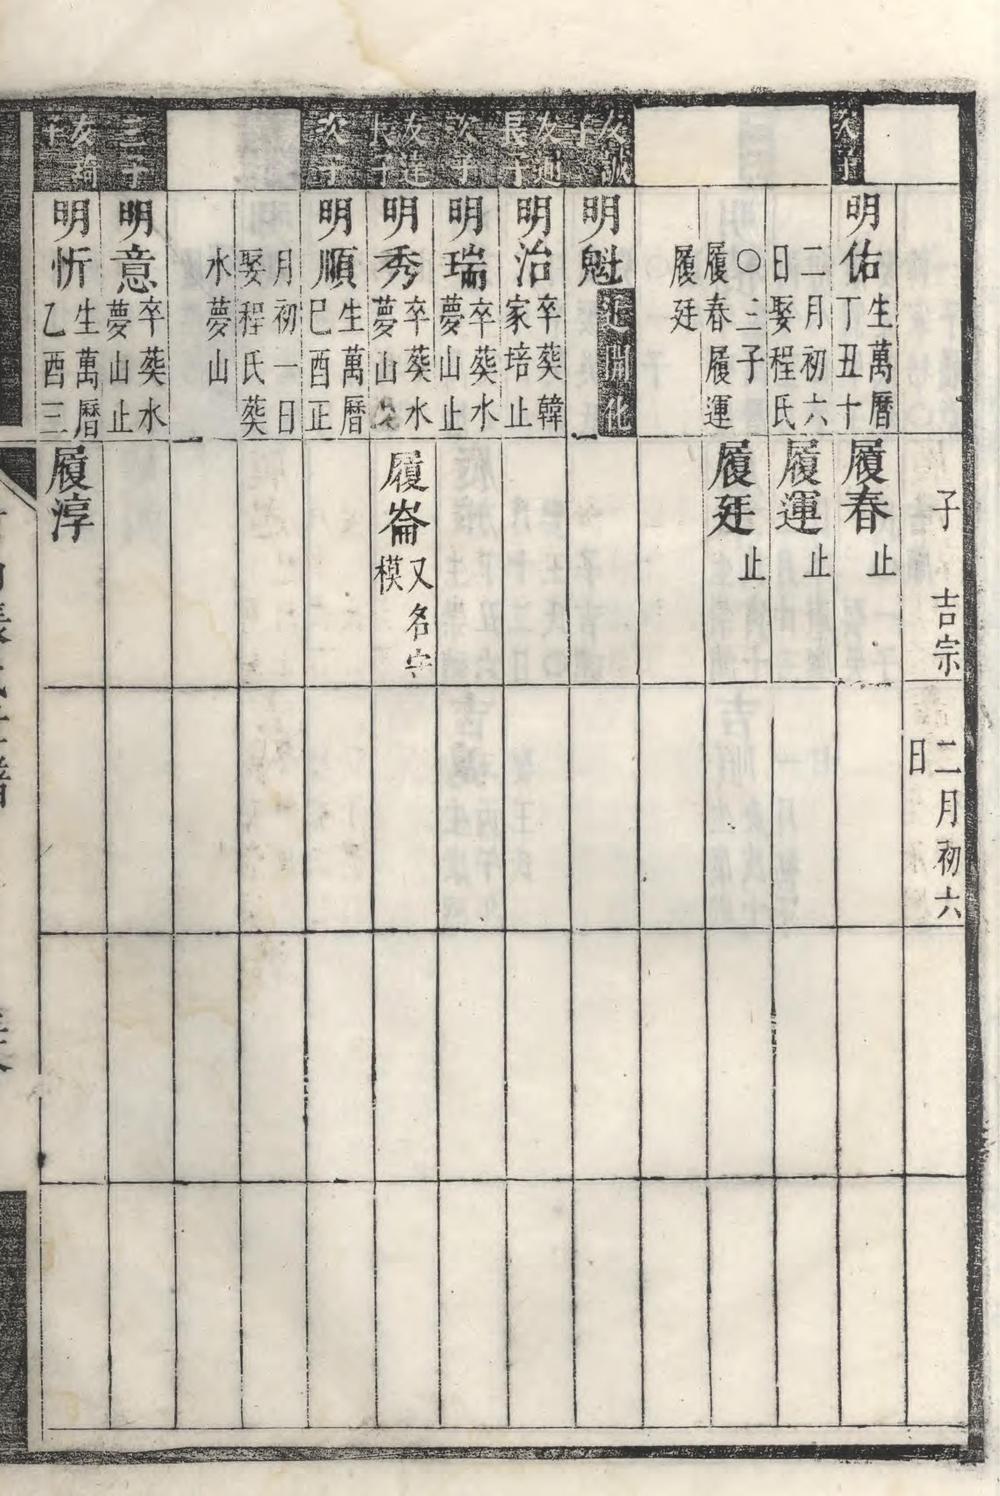 子
吉宗
二月初六
日
次子
明佑
生萬曆
丁丑十
二月初六
日娶程氏
〇三子
履春履運
履廷
履春
止
履運
止
履廷
止
友誠
子
明魁
遷開化
友迪
長子
明治
卒葬韓
家培止
次子
明瑞
卒葬水
夢山止
友蓮
長子
明秀
卒葬水
夢山
履崙
又名字
模
次子
明順
生萬曆
巳酉正
月初一日
娶程氏葬
水夢山
三子
明意
卒葬水
夢山止
友琦
子
明忻
生萬曆
乙酉三
履淳